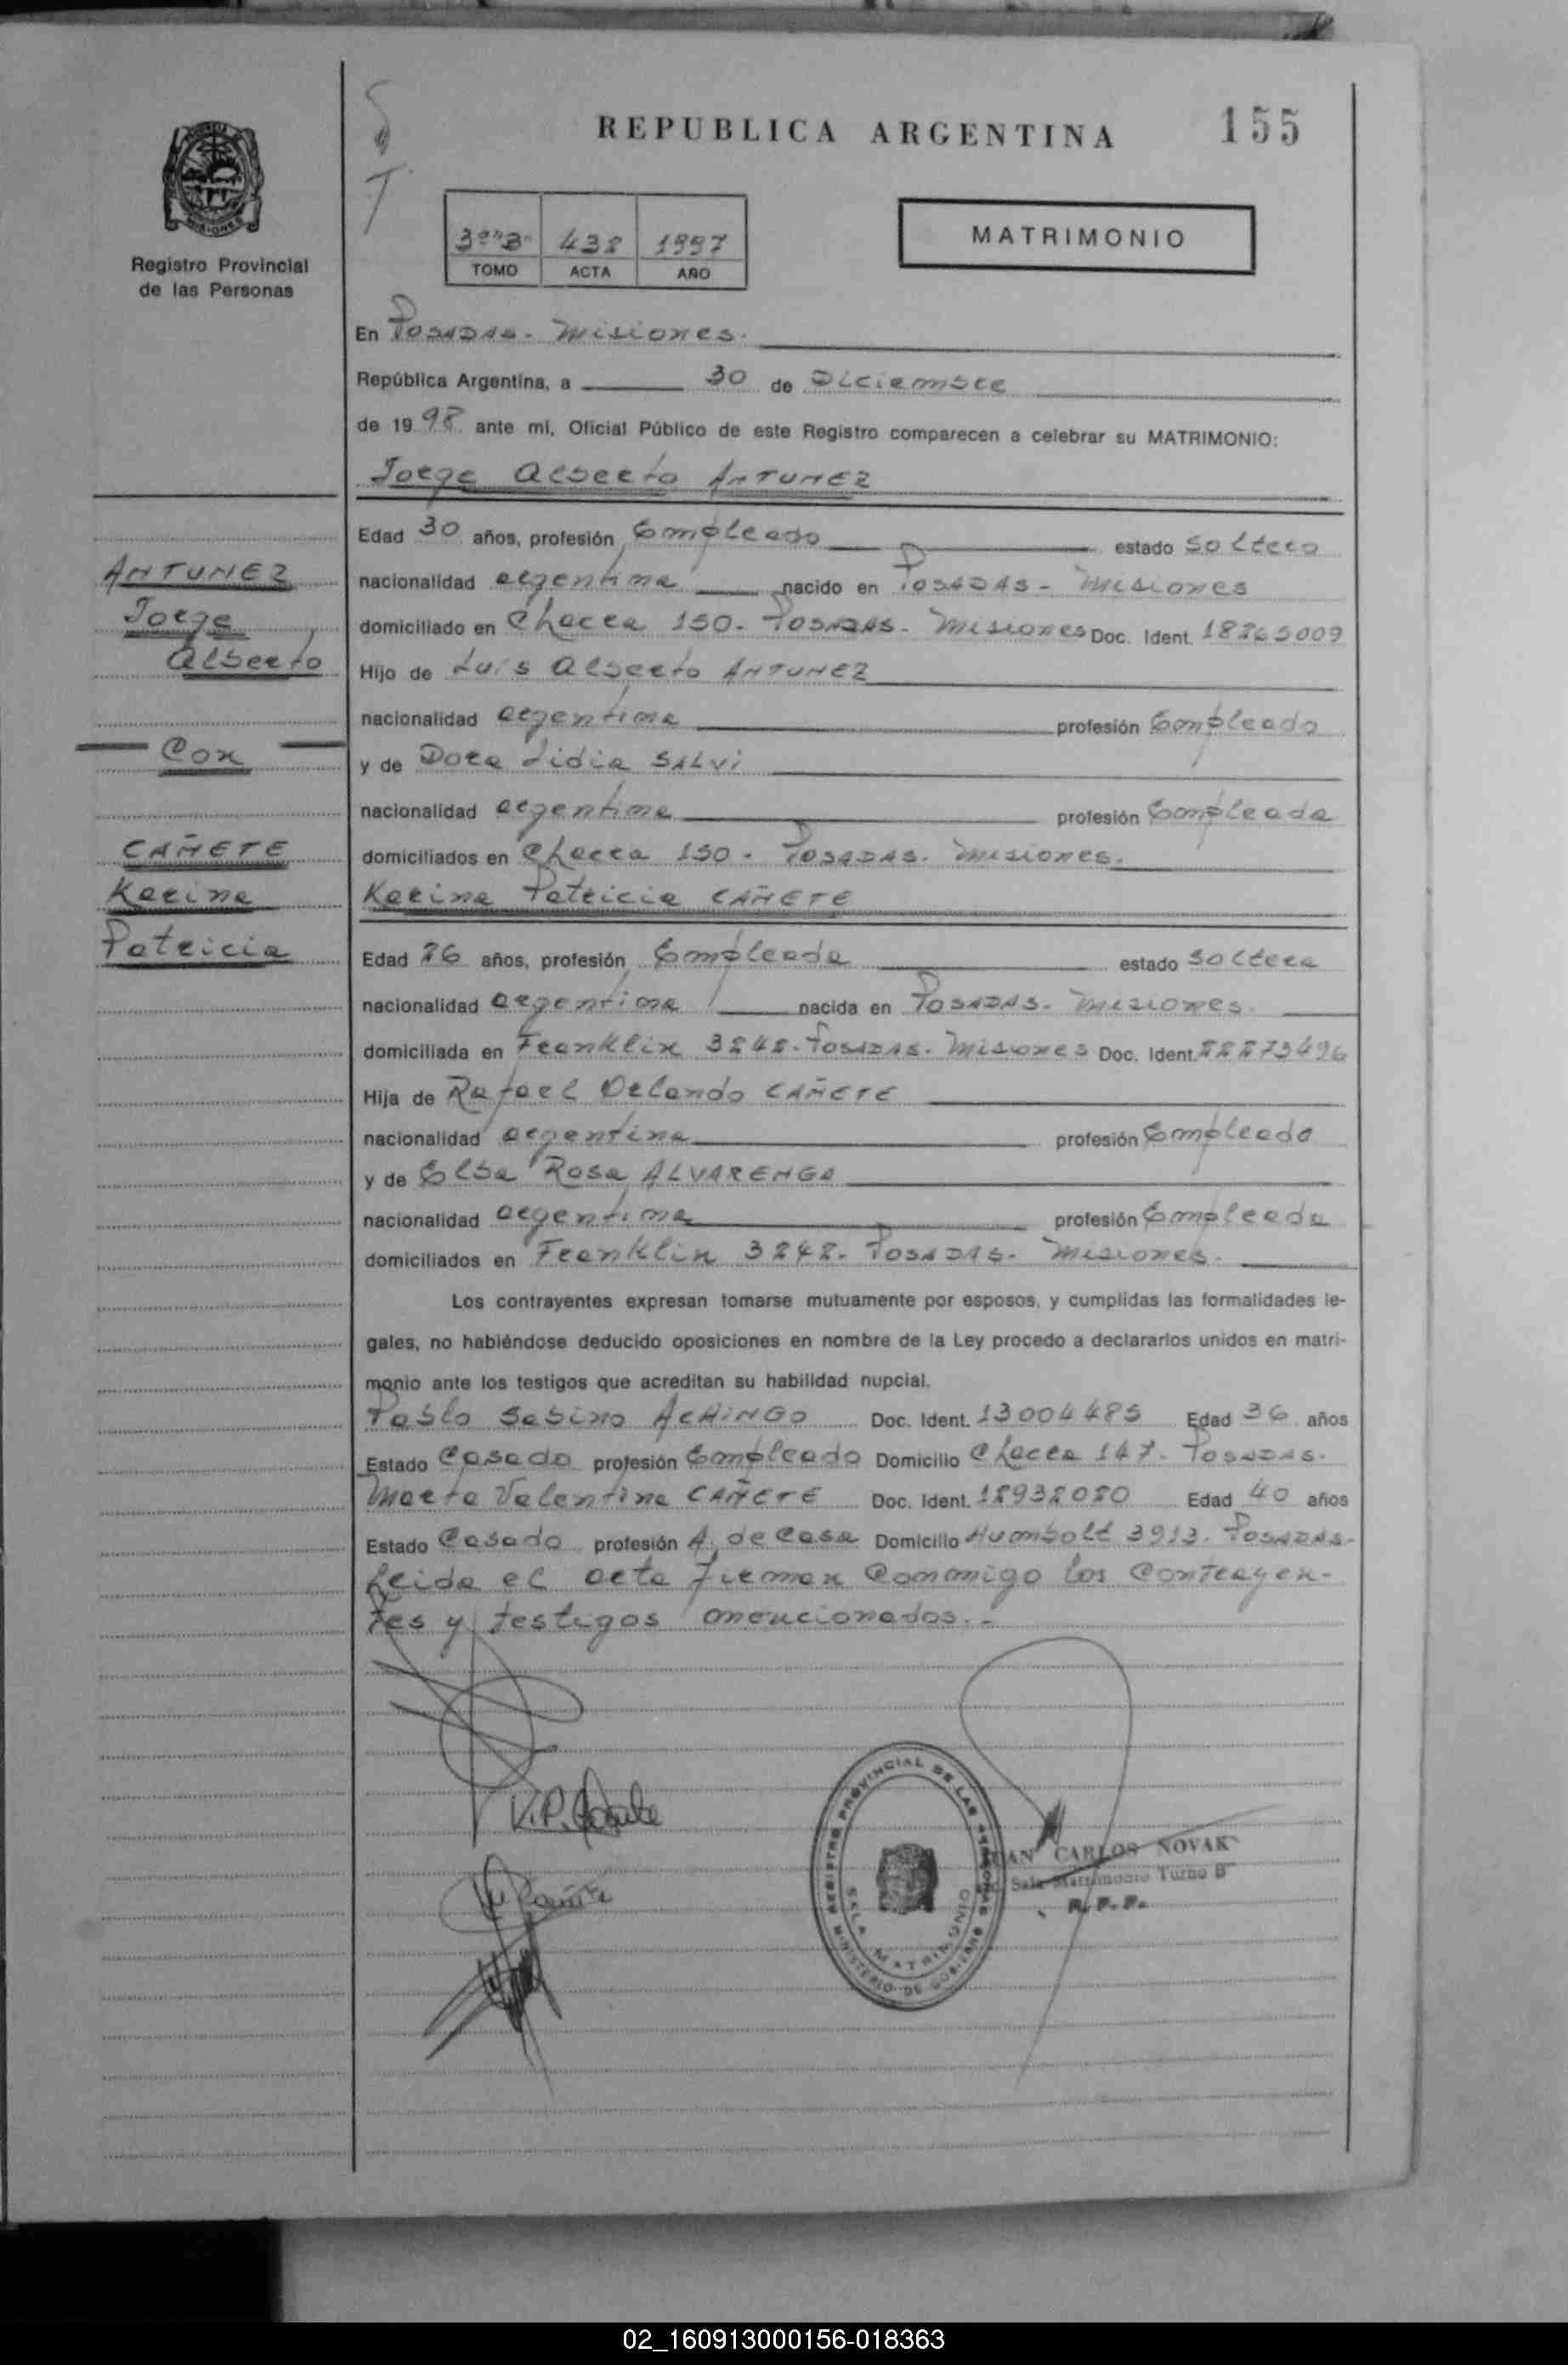 REPUBLICA ARGENTINA
155
MISIONES
Registro Provincial
de las Personas
3º"B" 438 1997
TOMO ACTA AÑO
MATRIMONIO
En Posadas - Misiones.
República Argentina, a 30 de Diciembre
de 1998 ante mi, Oficial Público de este Registro comparecen a celebrar su MATRIMONIO:
Jorge Alberto ANTUNEZ
Edad 30 años, profesión Empleado estado soltero
nacionalidad argentina nacido en Posadas - Misiones
domiciliado en Chacra 150 - Posadas - Misiones Doc. Ident.
Hijo de Luis Alberto ANTUNEZ
nacionalidad argentina profesión Empleado
y de Dora Lidia SALVI
nacionalidad argentina profesión Empleada
domiciliados en Chacra 150 - Posadas - Misiones.
Karina Patricia CAÑETE
Edad 26 años, profesión Empleada estado soltera
nacionalidad argentina nacida en Posadas - Misiones.
domiciliada en Franklin 3242 - Posadas - Misiones Doc. Ident.
Hija de Rafael Orlando CAÑETE
nacionalidad argentina profesión Empleado
y de Elba Rosa ALVARENGA
nacionalidad argentina profesión Empleada
domiciliados en Franklin 3242 - Posadas - Misiones.
Los contrayentes expresan tomarse mutuamente por esposos, y cumplidas las formalidades le-
gales, no habiéndose deducido oposiciones en nombre de la Ley procedo a declararlos unidos en matri-
monio ante los testigos que acreditan su habilidad nupcial.
Pablo Sabino ACHINGO Doc. Ident. 13004485 Edad 36 años
Estado Casado profesión Empleado Domicilio Chacra 147 - Posadas.
Marta Valentina CAÑETE Doc. Ident. 12938020 Edad 40 años
Estado Casado profesión A. de Casa Domicilio Humbolt 3913 - Posadas -
Leida el acta firman conmigo los contrayen-
tes y testigos mencionados.-
ANTUNEZ
Jorge
Alberto
Con
CAÑETE
Karina
Patricia
K.P. Cañete
REGISTRO PROVINCIAL DE LAS PERSONAS
SALA MATRIMONIO
MINISTERIO DE GOBIERNO
JUAN CARLOS NOVAK
Sala Matrimonio Turno B"
R. P. P.
02_160913000156-018363